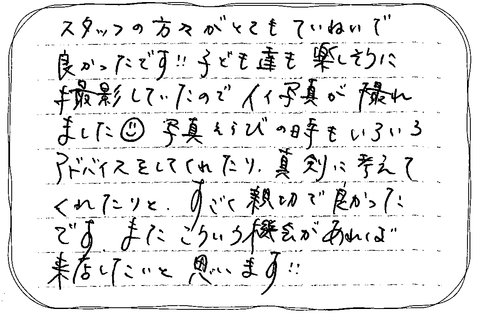 スタッフの方々がとてもていねいで
良かったです!! 子ども達も楽しそうに
撮影していたのでイイ写真が撮れ
ました☺ 写真えらびの時もいろいろ
アドバイスをしてくれたり、真剣に考えて
くれたりと、すごく親切で良かった
です。またこういう機会があれば
来店したいと思います!!